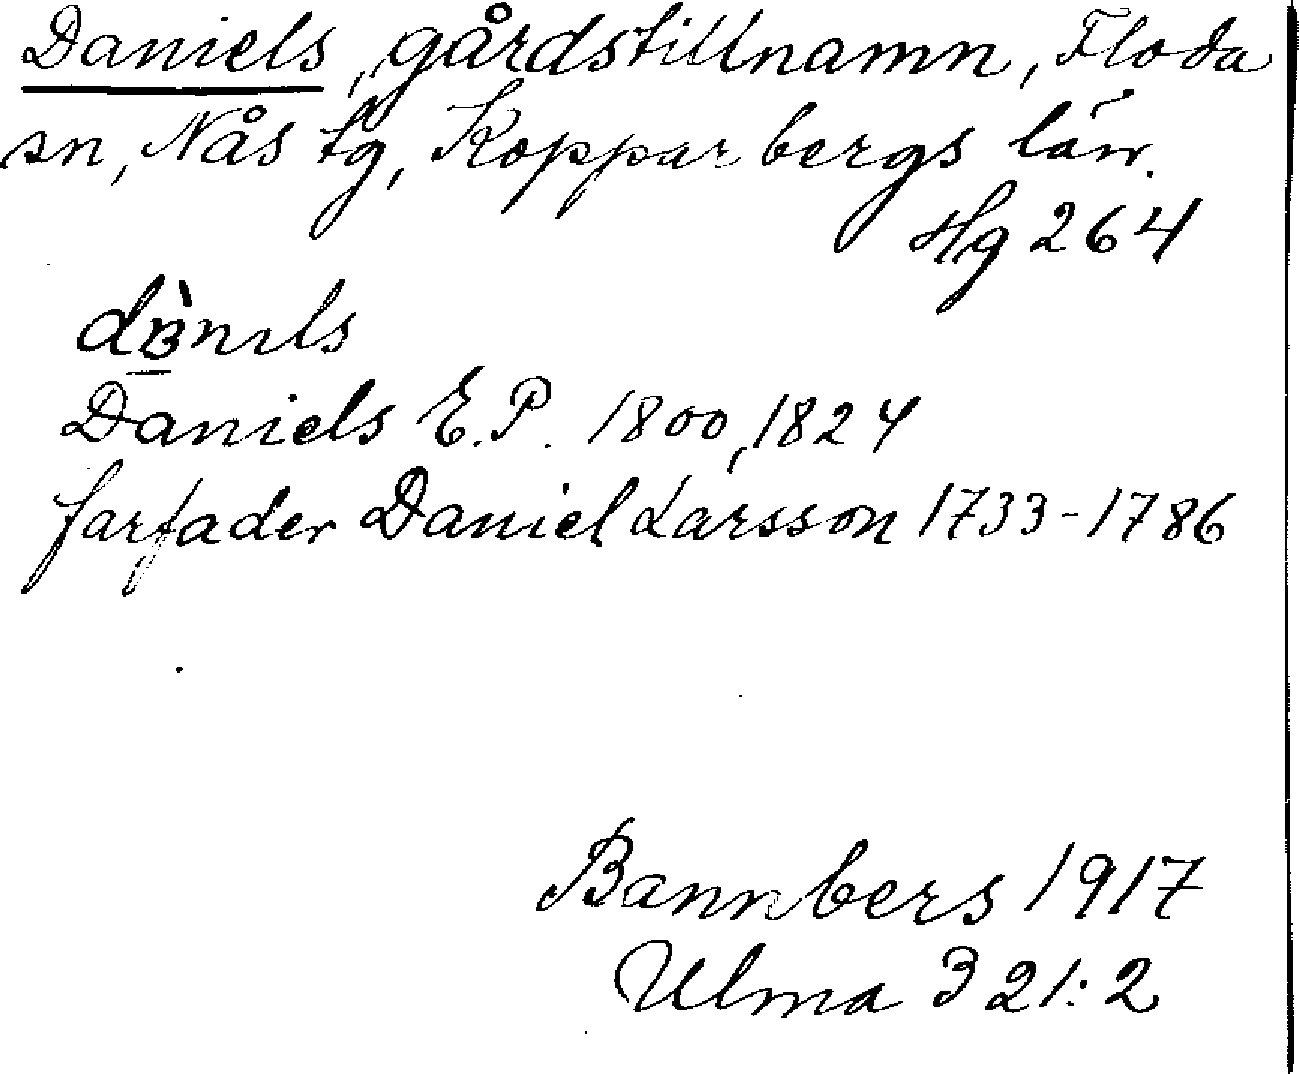 Daniels, gårdstillnamn, Floda
sn, Nås tg, Kopparbergs län.
Hg 264
Daniels E.P. 1800, 1824
farfader Daniel Larsson 1733-1786
Bannbers 1917
Ulma 321:2